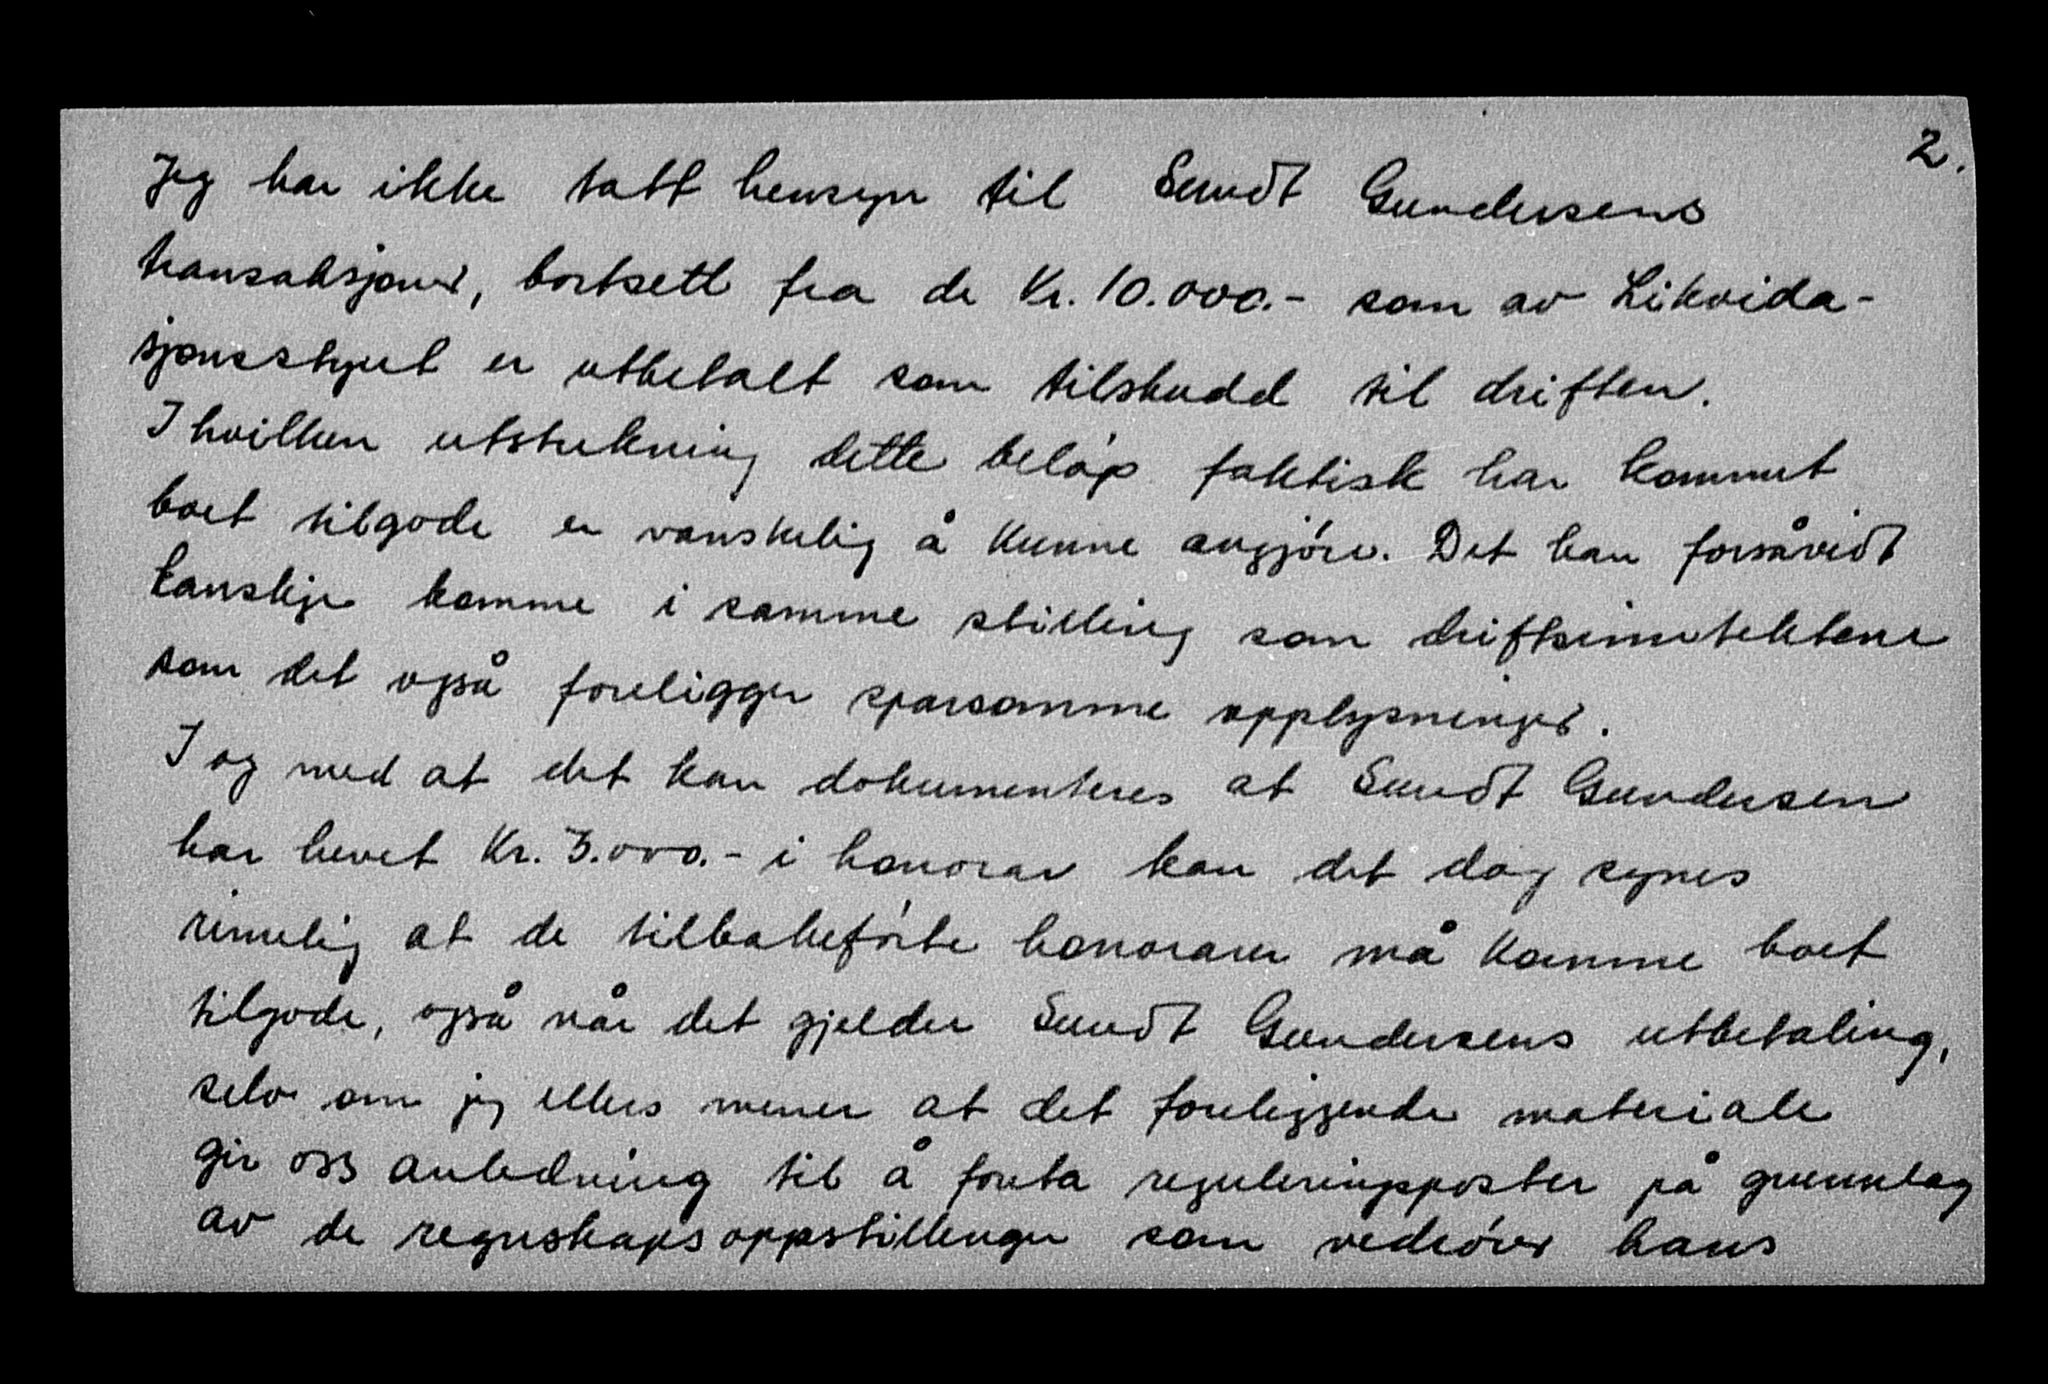 2.
Jeg har ikke tatt hensyn til Sundt Gundersens
transaksjoner, bortsett fra de Kr. 10.000.- som av Likvida-
sjonsstyret er utbetalt som tilskudd til driften.
I hvilken utstrekning dette beløp faktisk har kommet
boet tilgode er vanskelig å kunne avgjøre. Det kan forsåvidt
kanskje komme i samme stilling som driftsinntektene
som det også foreligger sparsomme opplysninger.
I og med at det kan dokumenteres at Sundt Gundersen
har hevet Kr. 3.000.- i honorar kan det dog synes
rimelig at de tilbakeførte honorarer må komme boet
tilgode, også når det gjelder Sundt Gundersens utbetaling,
selv om jeg ellers mener at det foreliggende materiale
gir oss anledning til å foreta reguleringsposter på grunnlag
av de regnskapsoppstillinger som vedrører hans